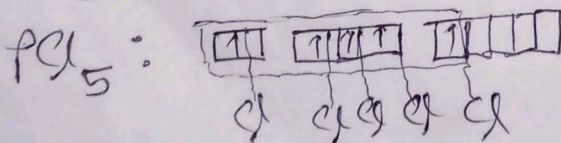 PCl5:
↑ ↑ ↑ ↑ ↑
Cl Cl Cl Cl Cl